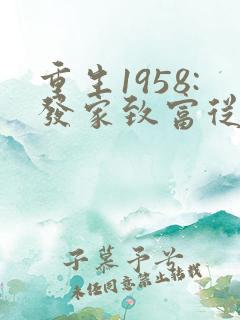 重生1958:
發家致富從
子慕予兮
未经同意禁止转载